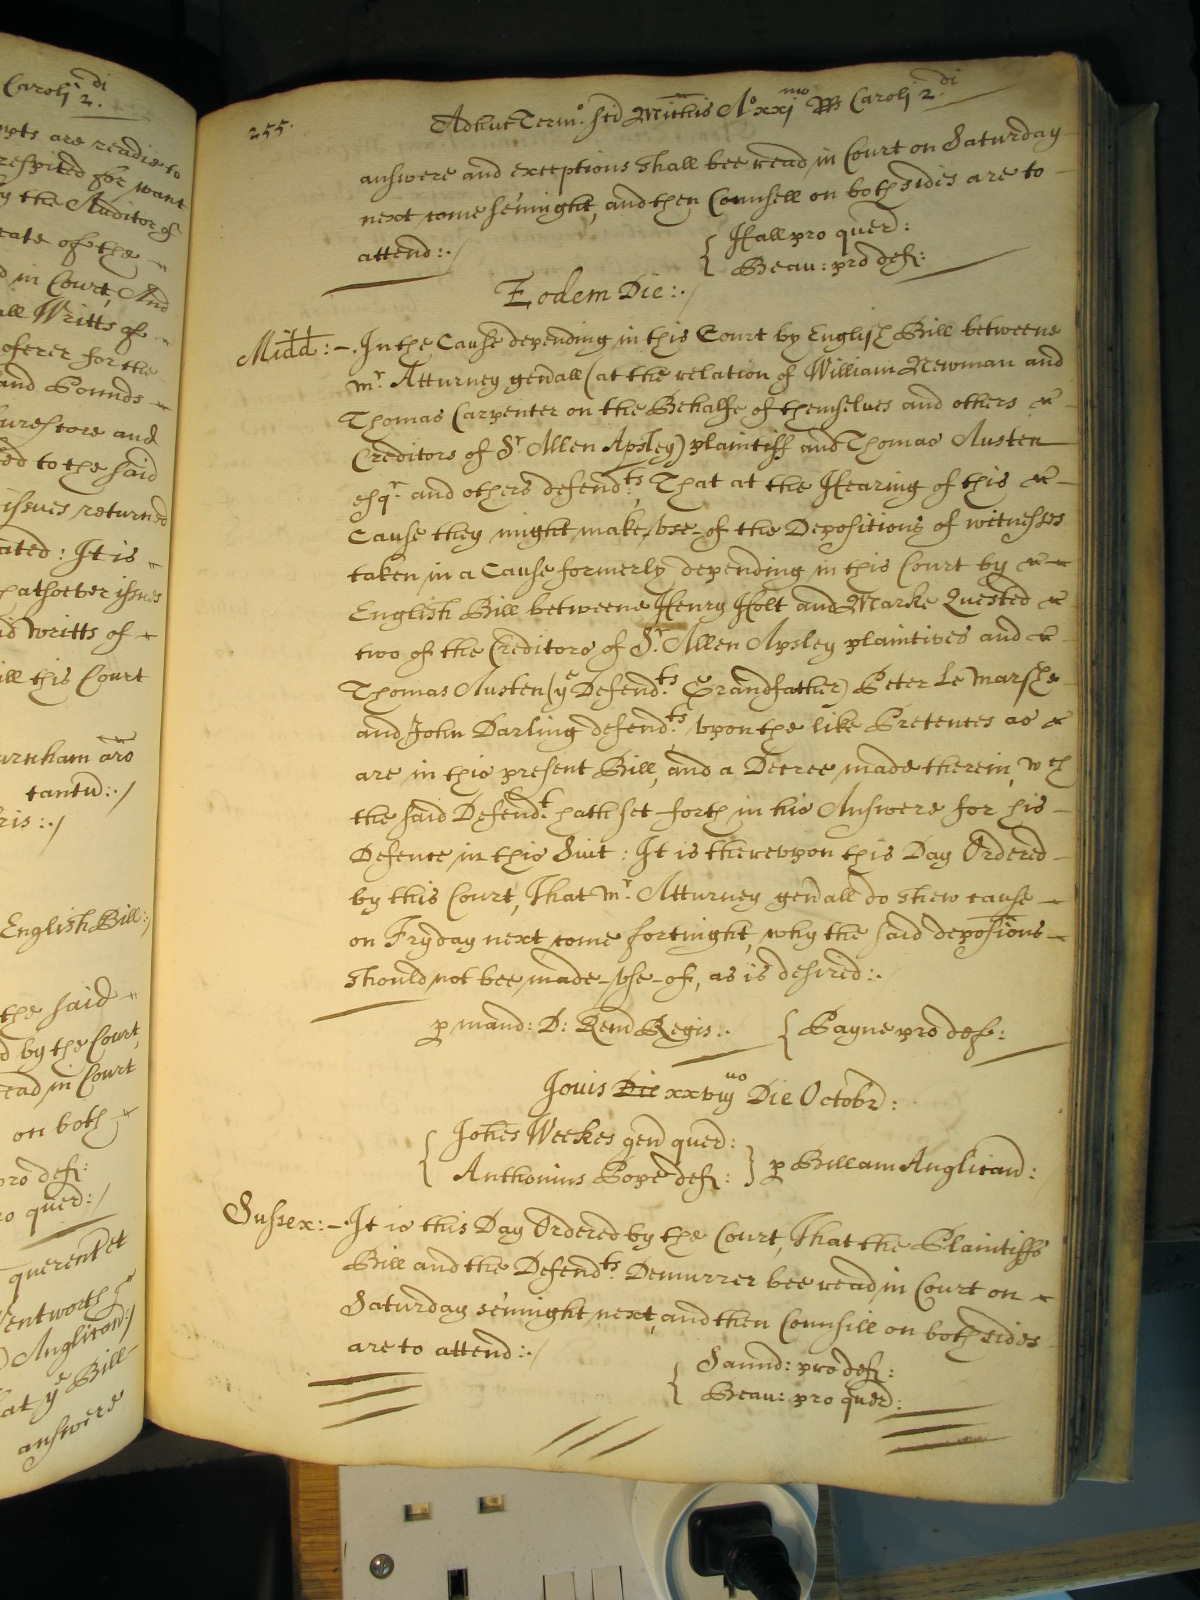 Caroli 2.di
pts are readie to
respited for want
y the Auditor of
cate of the
d in Court, And
all Writts of
oferer for the
and Pounds
urestore and
ed to the said
issues returned
ated: It is
hatsoever issues
id writts of
ill this Court
urnham aro
tantu:./
ris:./
English Bill:/
the said
d by the Court,
ead in Court
on both
pro def:
o quer:/
querent et
entworth
) Anglican:/
at ye Bill
answere
255.
Adhuc Termo. sci Michis Ao xximo RRs Caroli 2.di
answere and exceptions shall bee read in Court on Saturday
next come sennight, and then Counsell on both sides are to
attend:./
{ Hall pro quer:
Beau: pro def:
Eodem Die:./
Midd: - In the Cause depending in this Court by English Bill betweene
mr. Atturney genall (at the relation of William Newman and
Thomas Carpenter on the Behalfe of themselves and others
Creditors of Sr. Allen Apsley) plaintiff and Thomas Austen
esqr. and others defendts., That at the Hearing of this
Cause they might make vse of the Depositions of witnesses
taken in a Cause formerly depending in this Court by
English Bill betweene Henry Holt and Marke Quested
two of the Creditors of Sr. Allen Apsley plaintives and
Thomas Austen (ye Defendts. Grandfather) Peter Le Marshe
and John Darling defendts. vpon the like Pretences as
are in this present Bill, and a Decree made therein, wch
the said Defendt. hath set forth in his Answere for his
Defence in this Suit: It is therevpon this Day Ordered
by this Court, That mr. Atturney genall do shew cause
on Fryday next come fortnight, why the said deposions
should not bee made vse of, as is desired:.
p mand: D: Rem Regis:.
{ Payne pro def:
Jouis Die xxviijuo Die Octobr:
{ Johes Weekes gen quer:
Anthonius Pope def: } p Billam Anglican:
Sussex: - It is this Day Ordered by the Court, That the Plaintiffs
Bill and the Defendts. Demurrer bee read in Court on
Saturday sennight next, and then Counsill on both sides
are to attend:./
{ Saund: pro def:
Beau: pro quer: